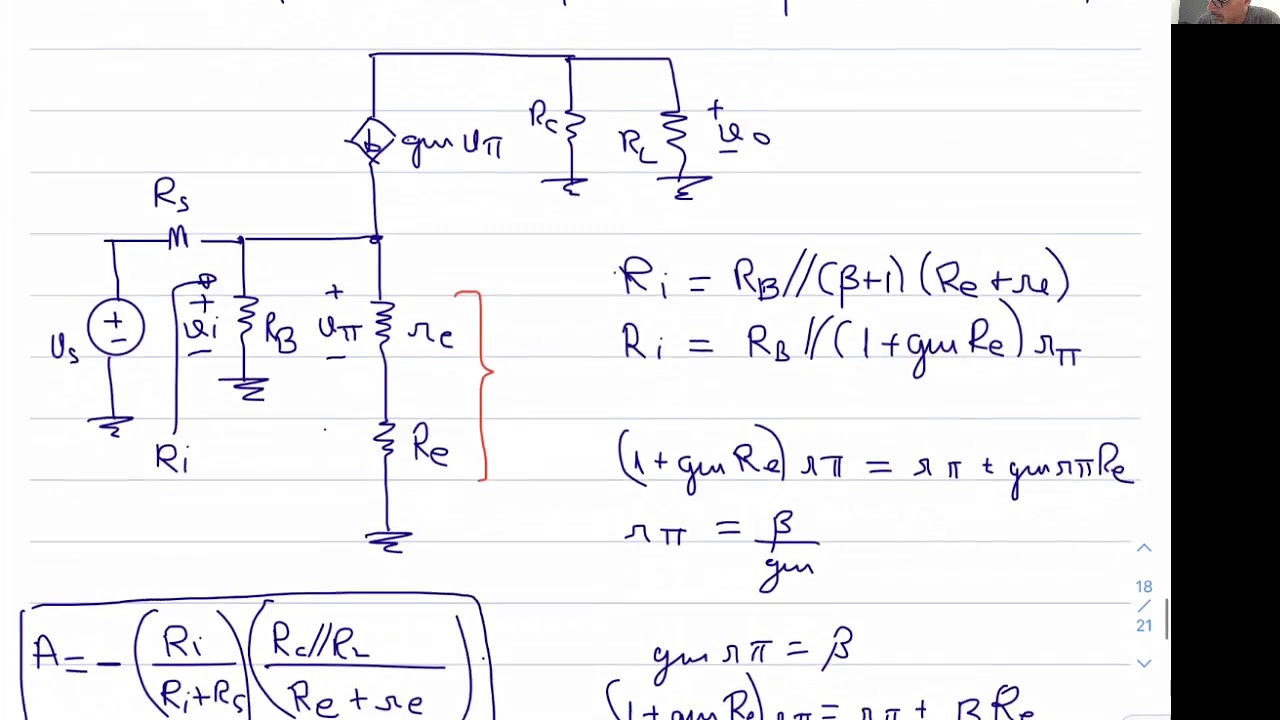 gm vπ
Rc
RL
+
vo
-
Rs
vs
+
-
+
vi
-
RB
+
vπ
-
re
Ri
Re
Ri = RB//(β+1)(Re+re)
Ri = RB//(1+gm Re) rπ
(1+gm Re) rπ = rπ + gm rπ Re
rπ = β/gm
18
/
21
A = - (Ri/(Ri+Rs)) (Rc//RL/(Re+re))
gm rπ = β
(1+gm Re) rπ = rπ + β Re